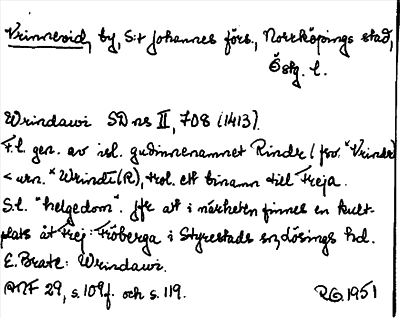 Vrinnevid, by, S:t Johannes förs., Norrköpings stad,
Östg. l.
Wrindawi SD ns II, 708 (1413).
F.l. gen. av isl. gudinnenamnet Rindr (fsv. *Vrindr
< urn. *Wrindi(R), trol. ett binamn till Freja.
S.l. "helgedom". Jfr att i närheten finnes en kult-
plats åt Frej: Fröberga i Styrestads sn, Lösings hd.
E. Brate: Wrindawi.
ANF 29, s. 109f. och s. 119.
RG. 1951